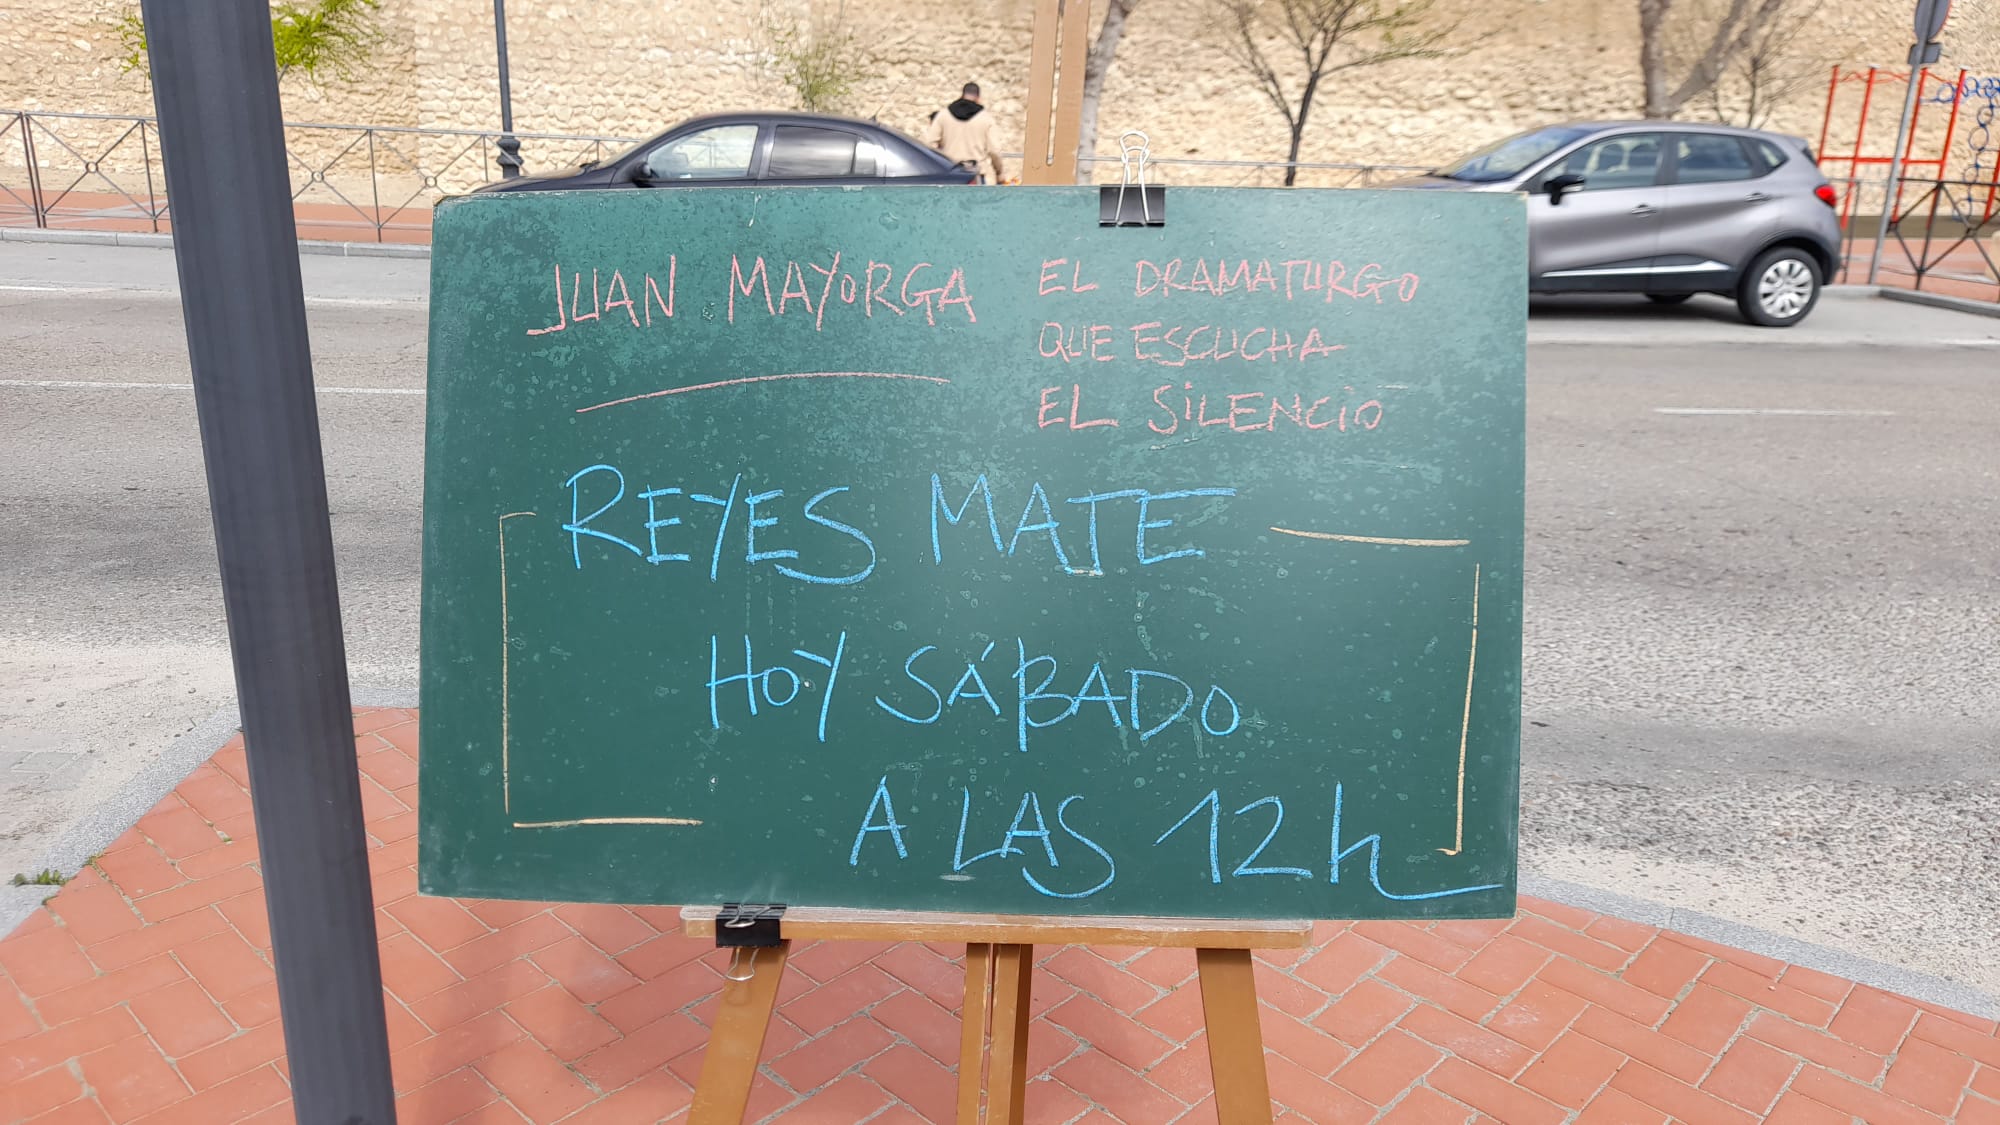 JUAN MAYORGA
EL DRAMATURGO
QUE ESCUCHA
EL SILENCIO
REYES MATE
HOY SÁBADO
A LAS 12h